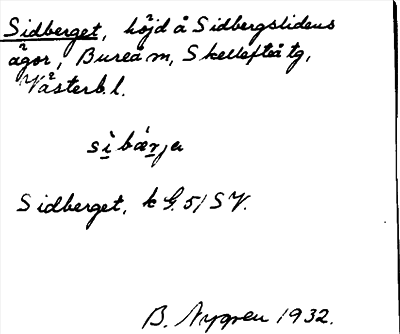 Sidberget, höjd å Sidbergslidens
ägor, Bureå m, Skellefteå tg,
Västerb. l.
sìbárja
Sidberget, k G. 51 SV.
B. Nygren 1932.